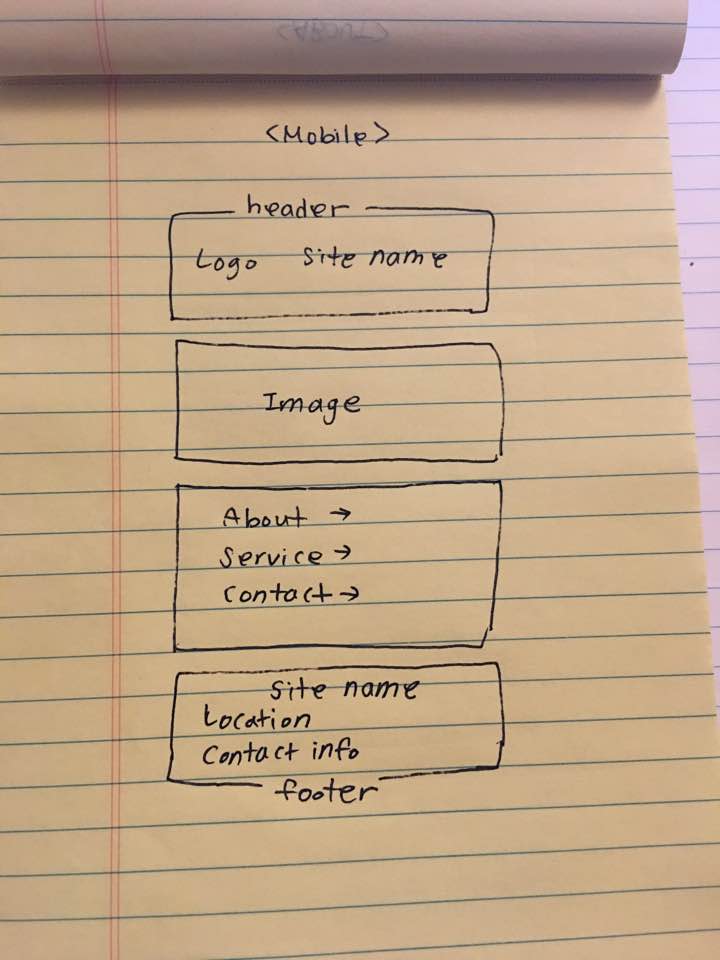 <Mobile>
header
Logo site name
Image
About →
Service →
Contact →
site name
Location
Contact info
footer